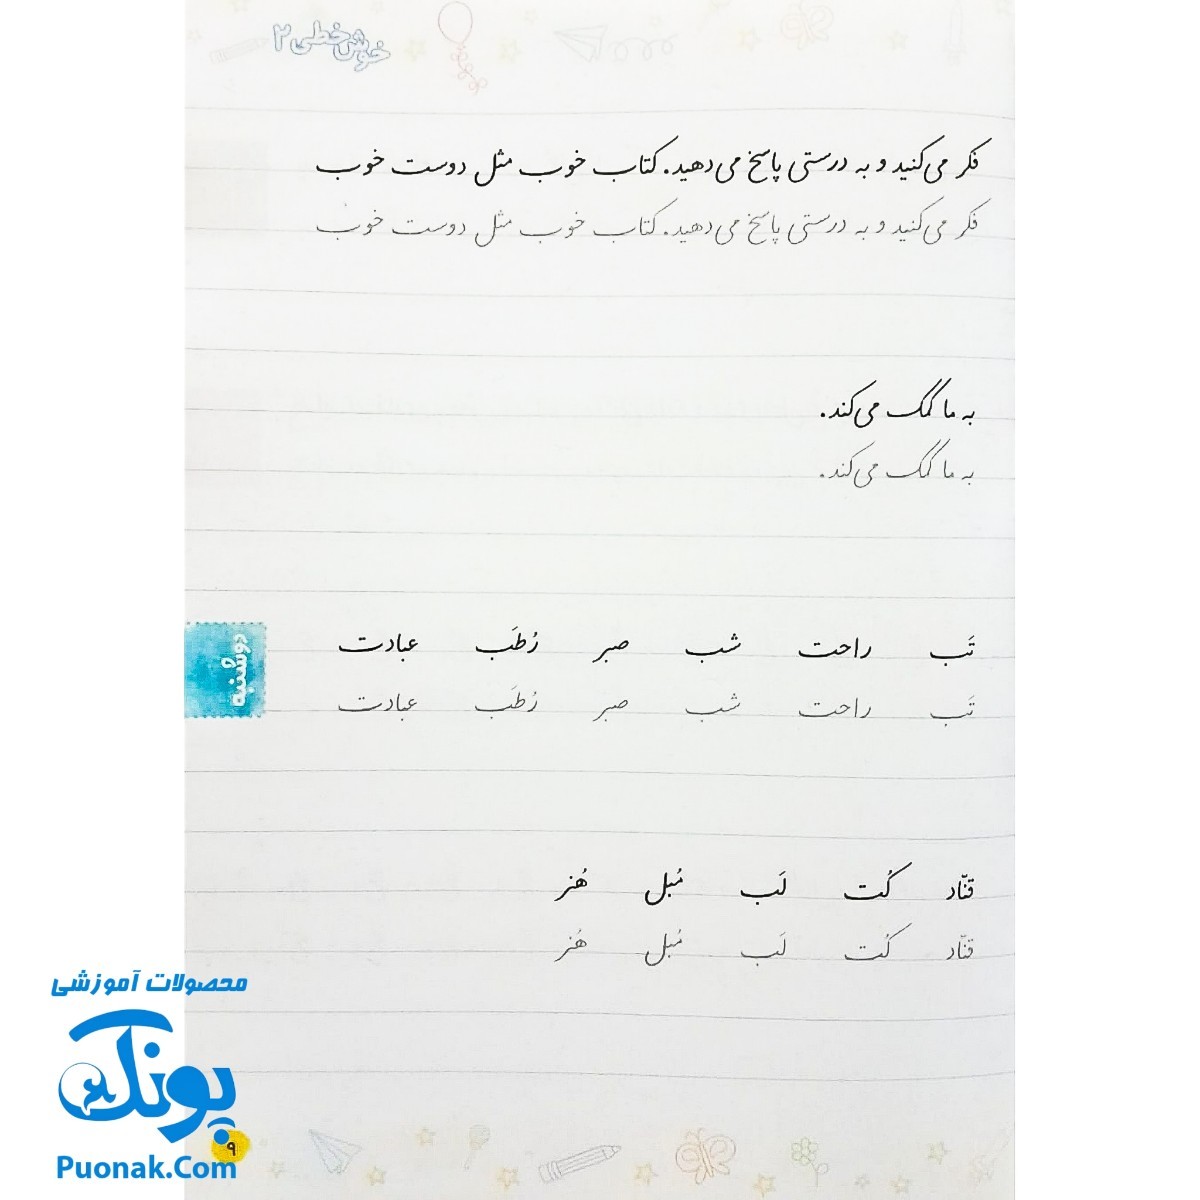 خوش‌خطی ۲
فکر می‌کنید و به درستی پاسخ می‌دهید. کتاب خوب مثل دوست خوب
فکر می‌کنید و به درستی پاسخ می‌دهید. کتاب خوب مثل دوست خوب
به ما کمک می‌کند.
به ما کمک می‌کند.
تَب راحت شب صبر رُطَب عبادت
دوشنبه
تَب راحت شب صبر رُطَب عبادت
قنّاد کُت لَب مُبل هُنر
قنّاد کُت لَب مُبل هُنر
محصولات آموزشی
پونک
۹
Puonak.Com